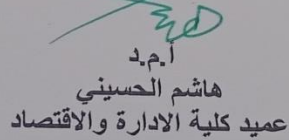 أ.م.د
هاشم الحسيني
عميد كلية الادارة والاقتصاد